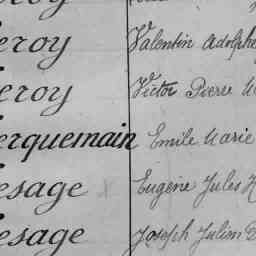 eroy Valentin Adolphe
eroy Victor Pierre
erquemain Emile Marie
esage Eugène Jules
esage Joseph Julien